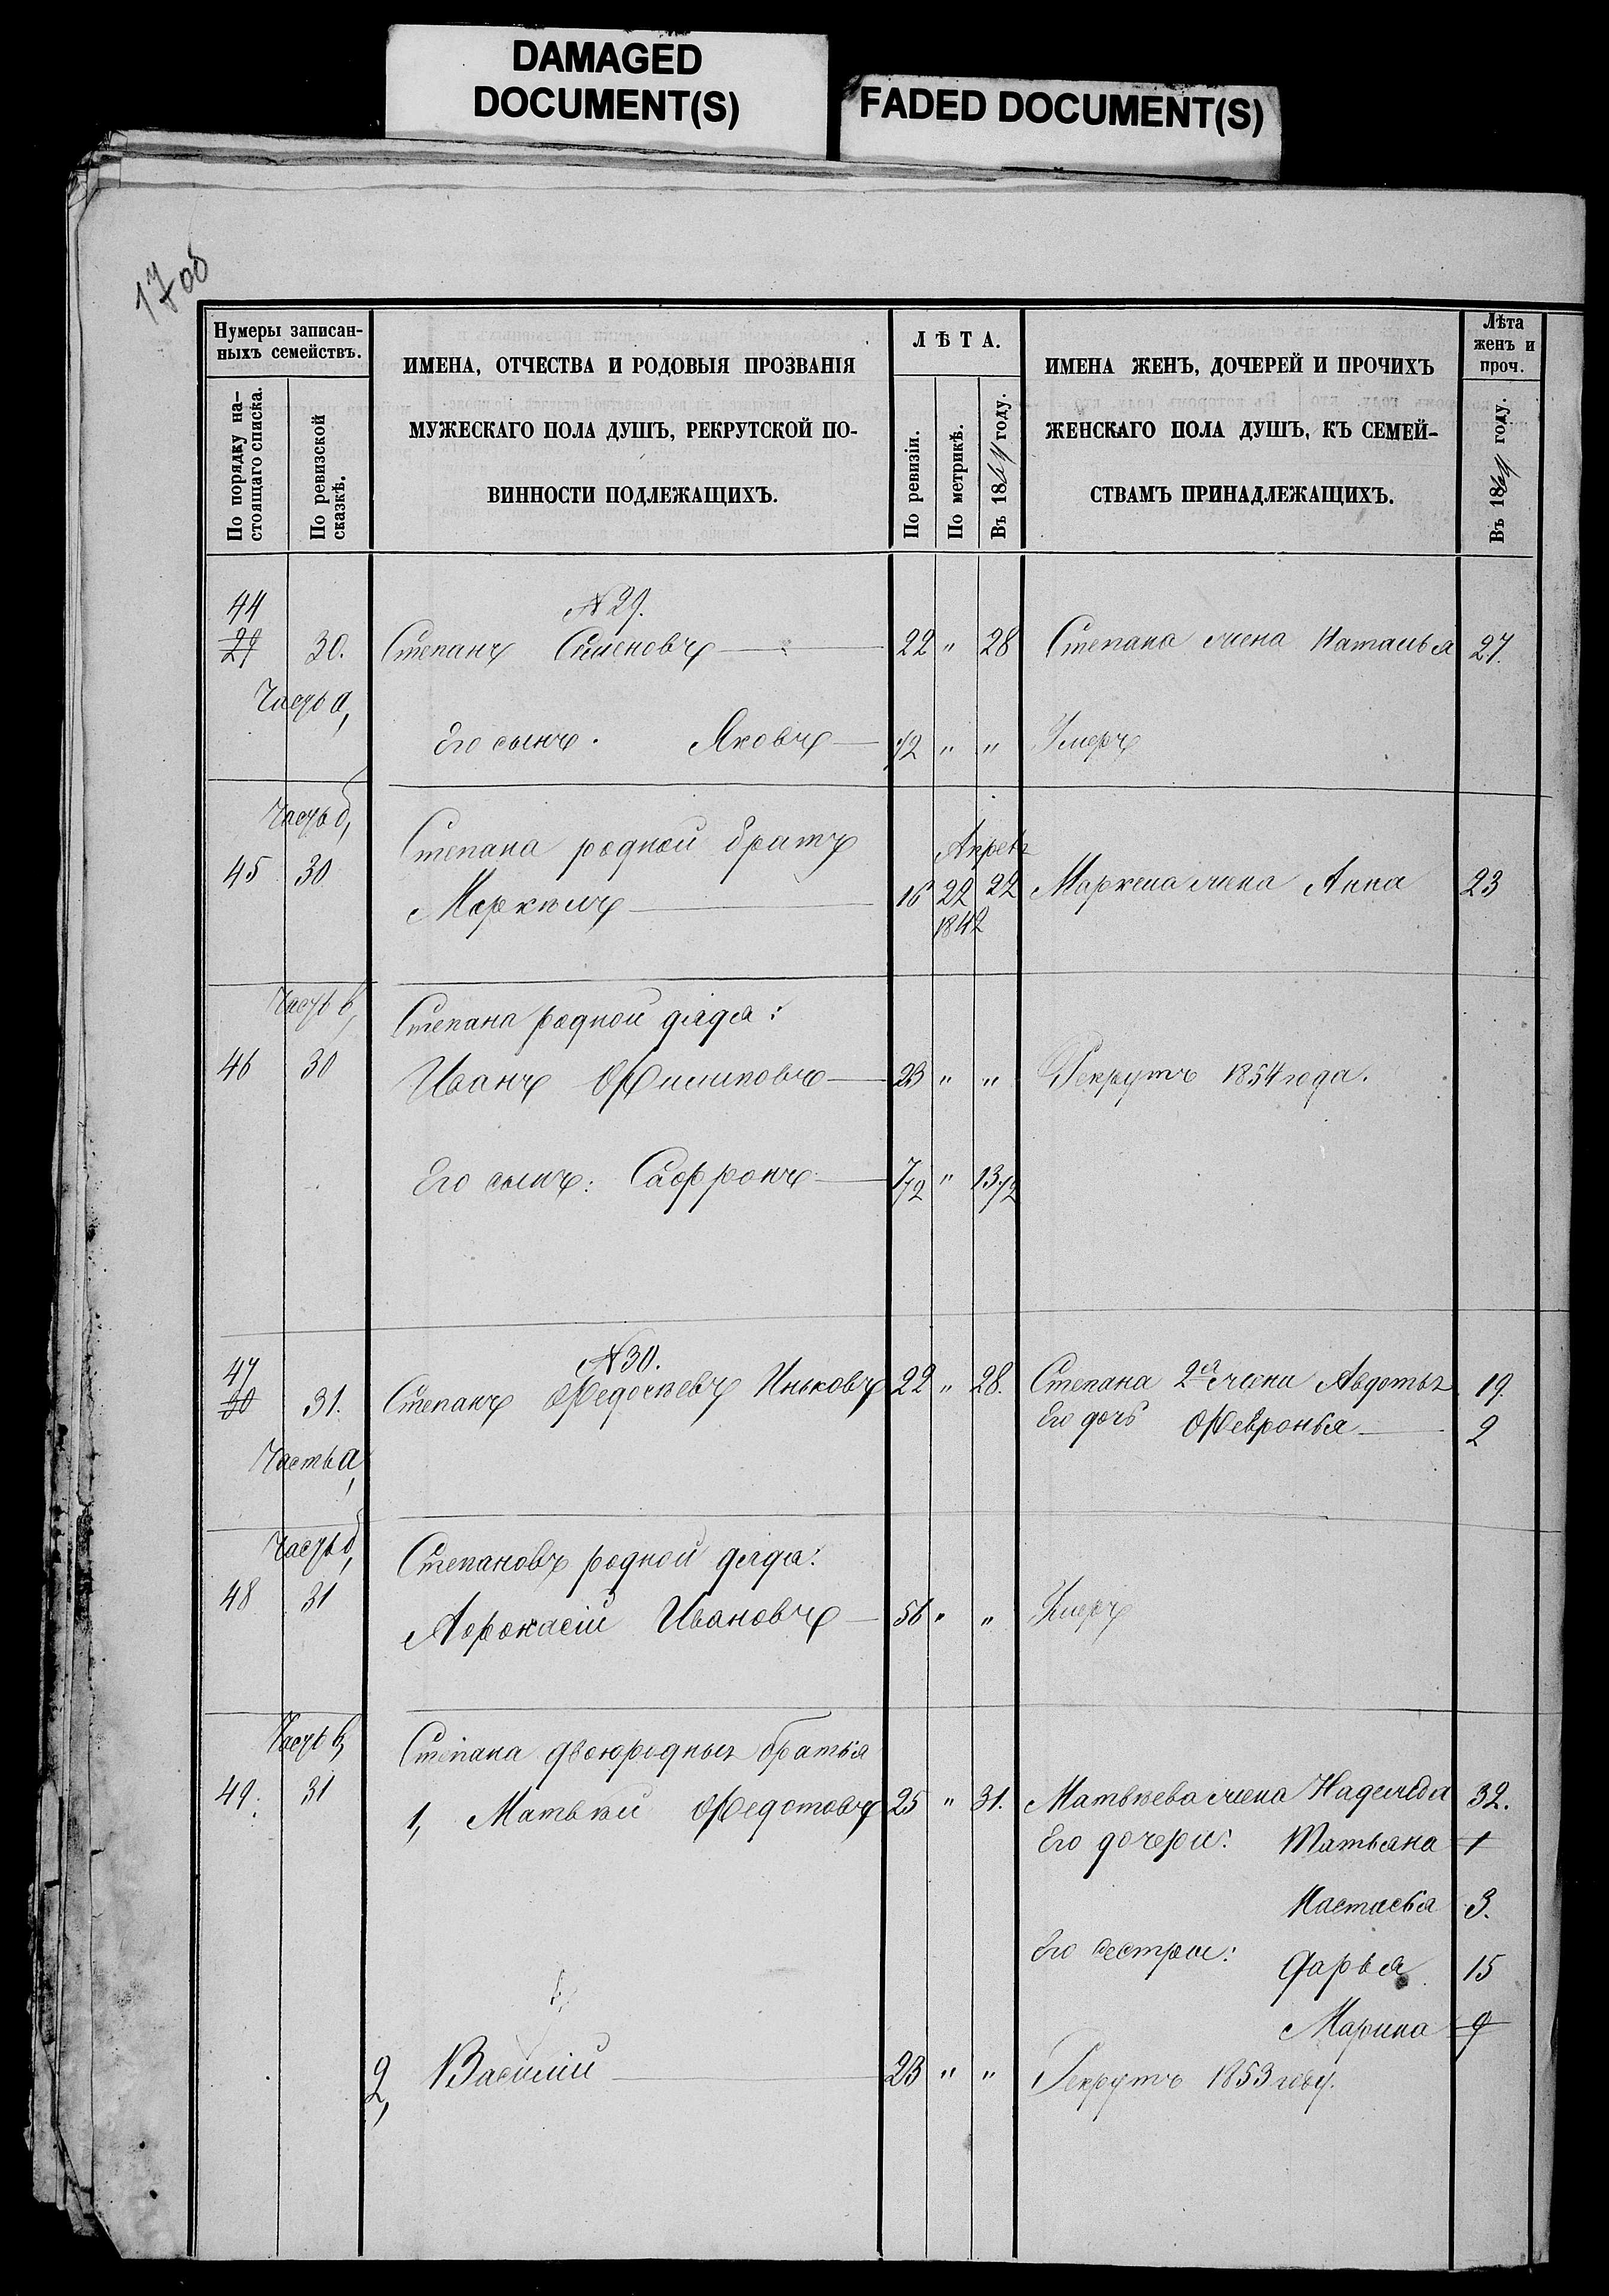 DAMAGED
DOCUMENT(S)
FADED DOCUMENT(S)
17об
Нумеры записан-
ныхъ семействъ.
По порядку на-
стоящаго списка.
По ревизской
сказкѣ.
ИМЕНА, ОТЧЕСТВА И РОДОВЫЯ ПРОЗВАНІЯ
МУЖЕСКАГО ПОЛА ДУШЪ, РЕКРУТСКОЙ ПО-
ВИННОСТИ ПОДЛЕЖАЩИХЪ.
ЛѢТА.
По ревизіи.
По метрикѣ.
Въ 1864 году.
ИМЕНА ЖЕНЪ, ДОЧЕРЕЙ И ПРОЧИХЪ
ЖЕНСКАГО ПОЛА ДУШЪ, КЪ СЕМЕЙ-
СТВАМЪ ПРИНАДЛЕЖАЩИХЪ.
Лѣта
женъ и
проч.
Въ 1864 году.
44 №29.
29 30. Степанъ Сименовъ 22 " 28 Степана жена Наталья 27.
Часть а,
Его сынъ. Яковъ 1/2 " " Умеръ
Часть б,
Степана родной братъ Апрель
45 30 Маркелъ 16 22 22 Маркела жена Анна 23
1842
Часть в,
Степана родной дядя:
46 30 Иванъ Филиповъ 23 " " Рекрутъ 1854 года.
Его сынъ: Сафронъ 7/2 " 13 1/2
47 №30.
30 31. Степанъ Федосѣевъ Иньковъ 22 " 28. Степана 2я жена Авдотья 19.
Его дочь Февронья 2
Часть а,
Часть б,
Степановъ родной дядя:
48 31 Афонасій Ивановъ 56 " " Умеръ
Часть в,
Степана двоюродныя братья
49. 31 1, Матвѣй Федотовъ 25 " 31. Матвѣева жена Надежда 32.
Его дочери: Татьяна 1
Настасья 3.
Его сестры: Дарья 15
Марина 9
2, Василій 23 " " Рекрутъ 1853 году.